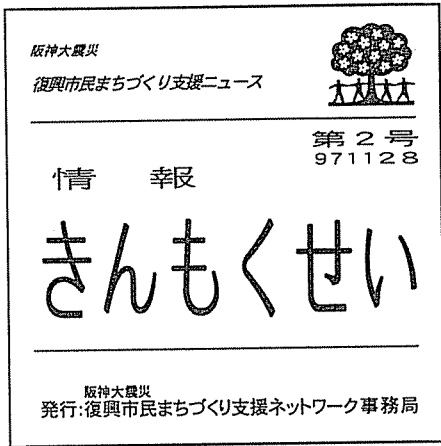 阪神大震災
復興市民まちづくり支援ニュース
第2号
971128
情報
きんもくせい
阪神大震災
発行:復興市民まちづくり支援ネットワーク事務局